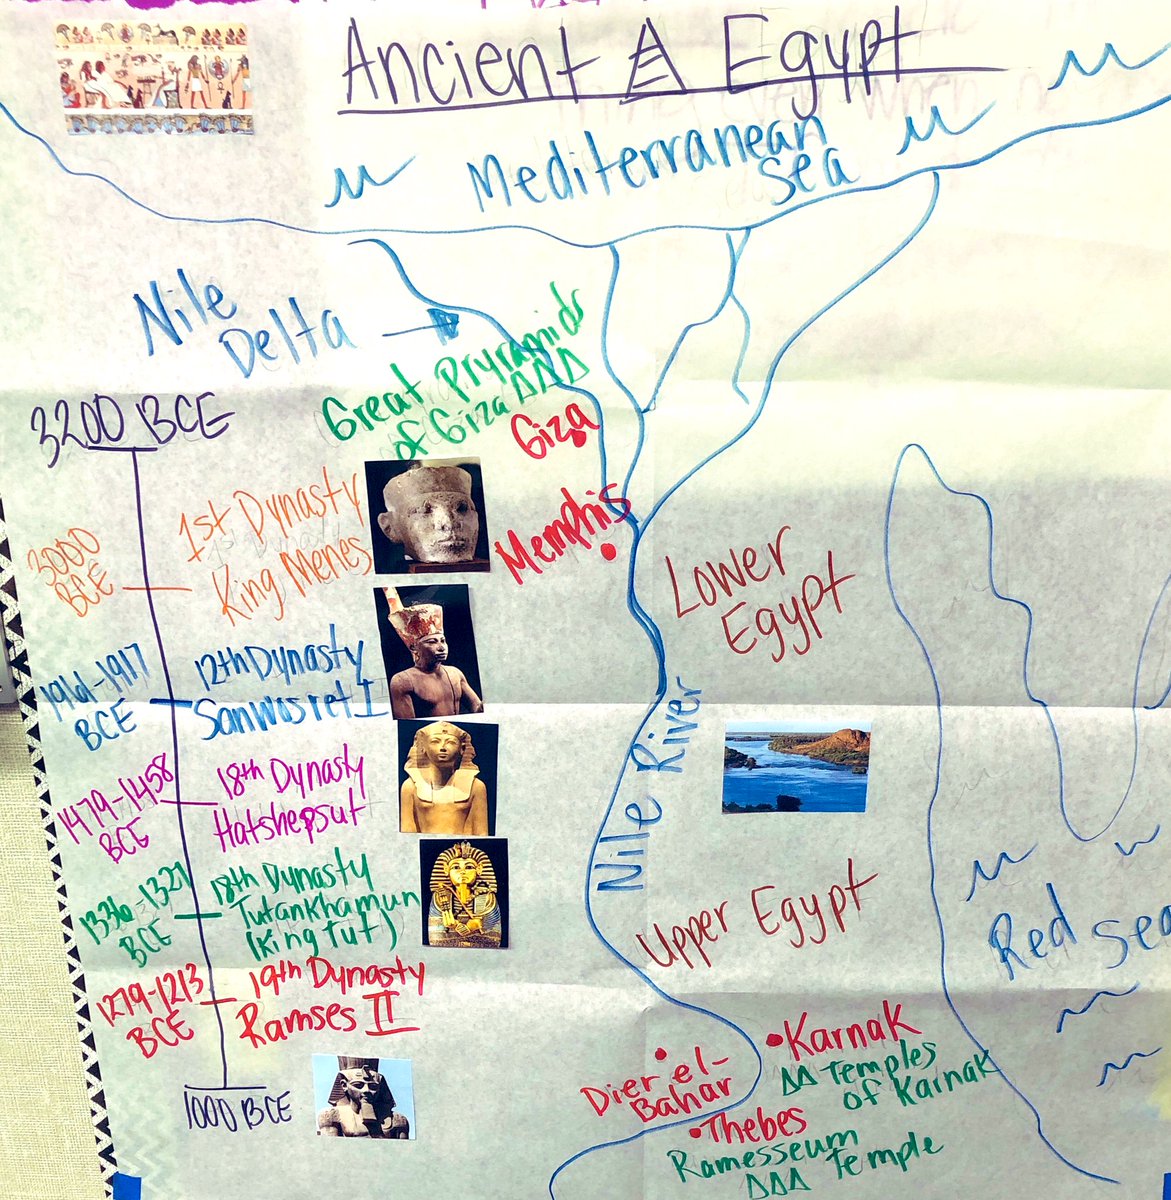 Ancient Egypt
Mediterranean
Sea
Nile
Delta
Great Pryramids
of Giza
Giza
Memphis
Lower
Egypt
Nile River
Upper Egypt
Red Sea
Karnak
temples
of Karnak
Dier el-
Bahar
Thebes
Ramesseum
temple
3200 BCE
3000
BCE
1st Dynasty
King Menes
1961-1917
BCE
12th Dynasty
Sanwosret I
1479-1458
BCE
18th Dynasty
Hatshepsut
1336-1327
BCE
18th Dynasty
Tutankhamun
(King Tut)
1279-1213
BCE
19th Dynasty
Ramses II
1000 BCE